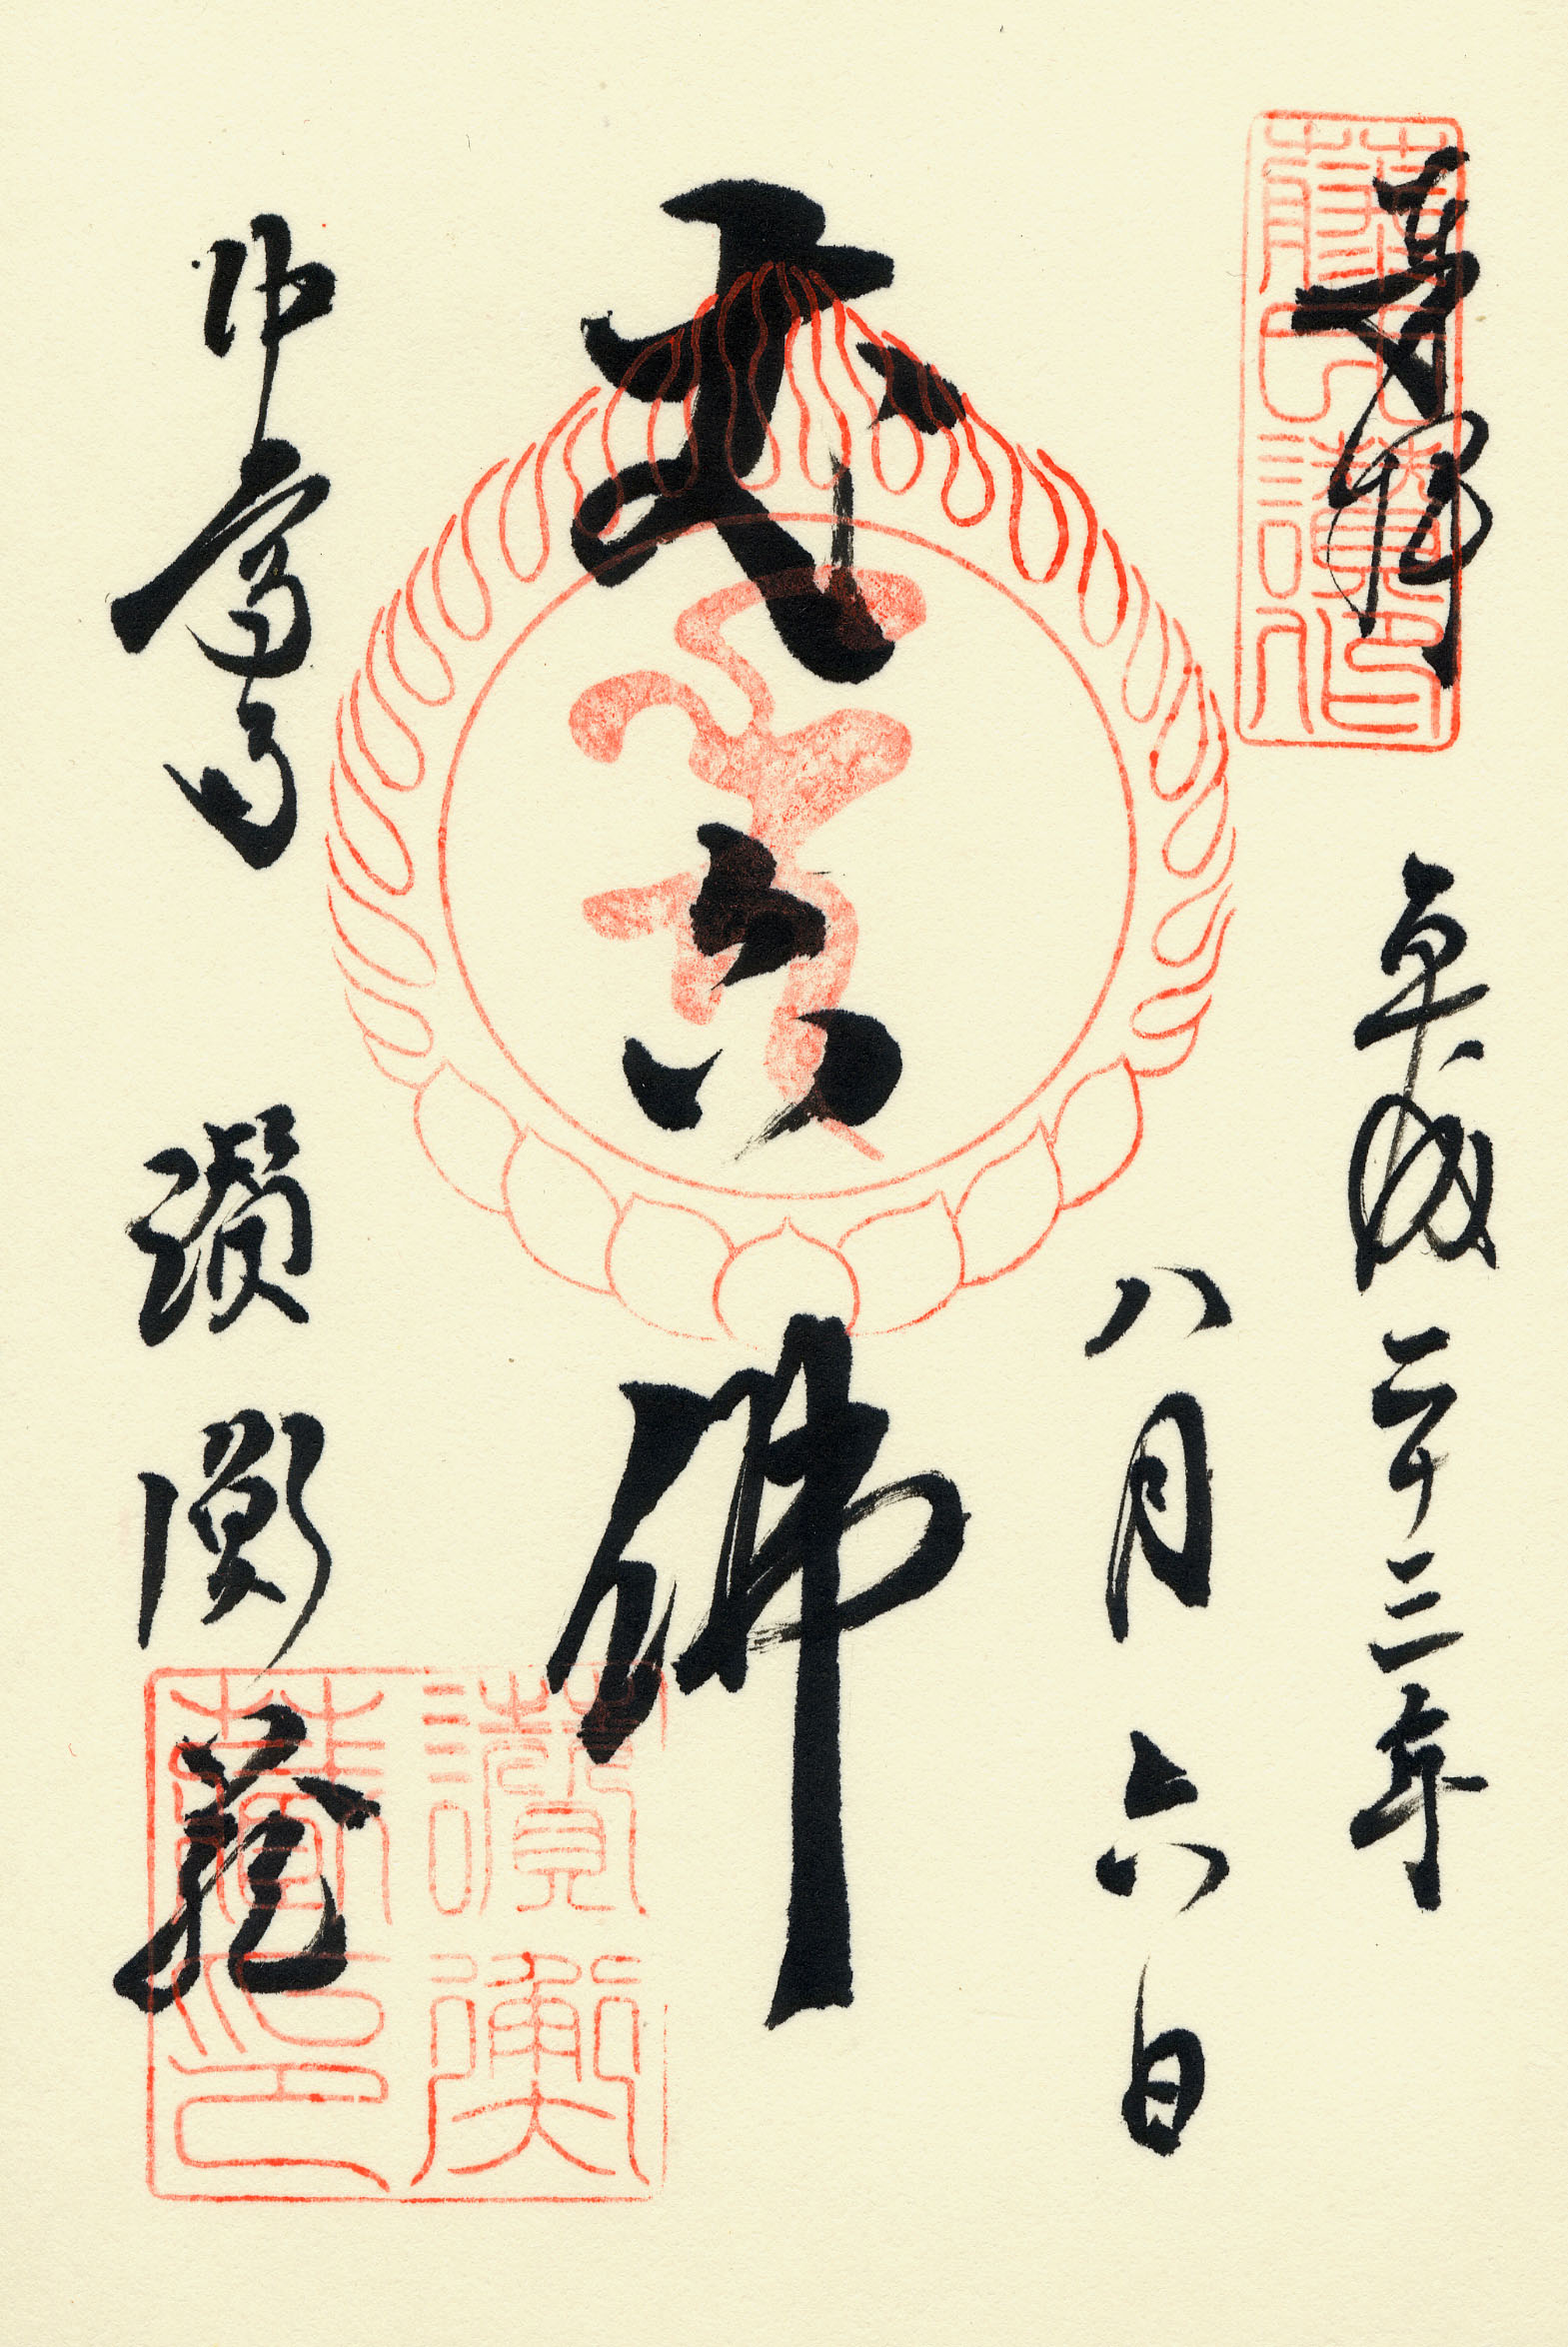 奉拝
平成二十三年
八月六日
丈六佛
中尊寺
讃衡蔵
讃衡蔵印